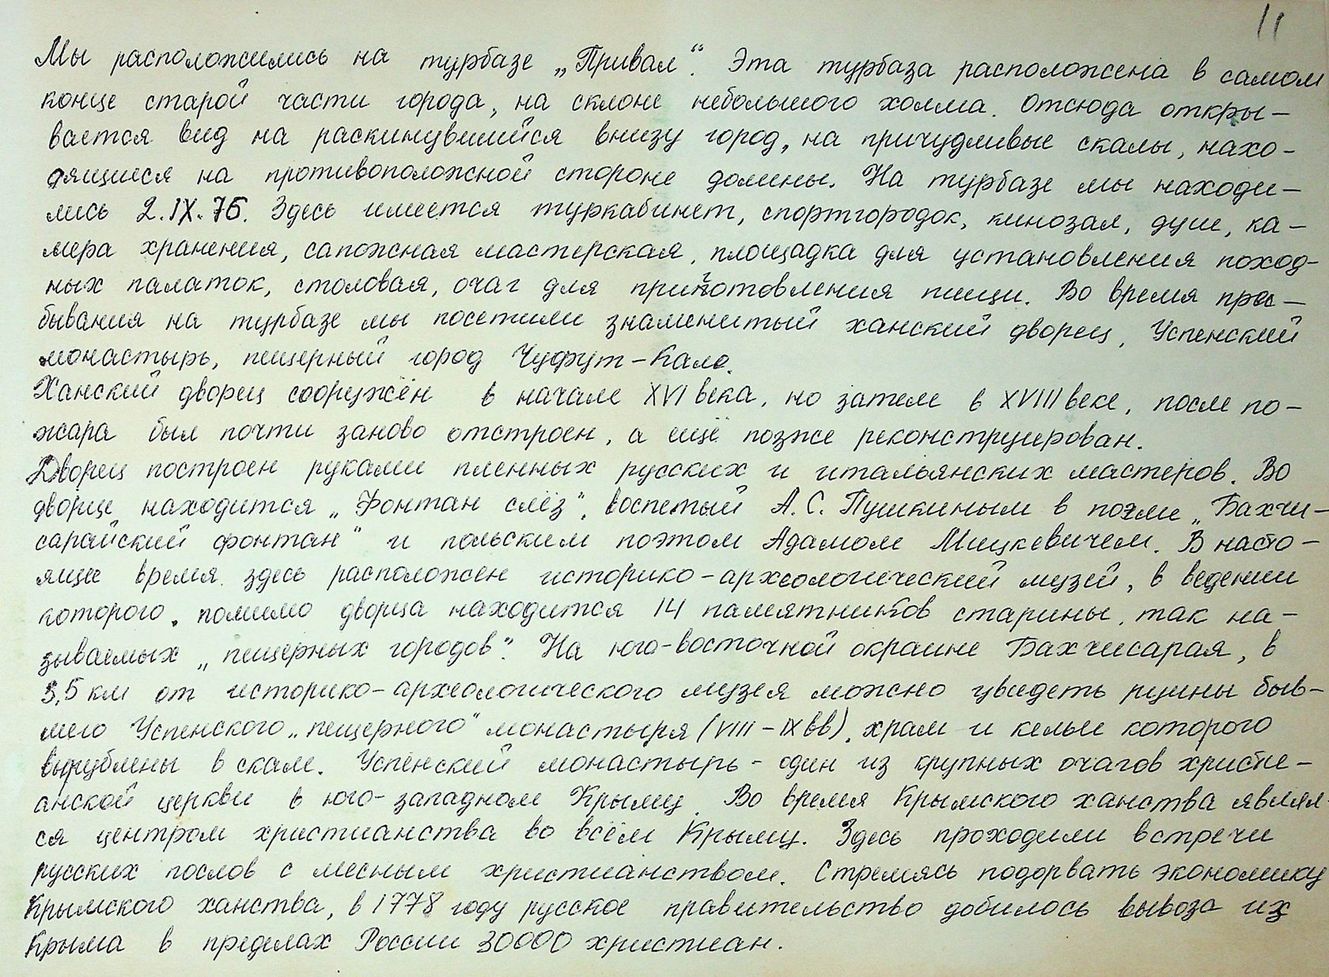 11
Мы расположились на турбазе „Привал“. Эта турбаза расположена в самом
конце старой части города, на склоне небольшого холма. Отсюда откры-
вается вид на раскинувшийся внизу город, на причудливые скалы, нахо-
дящиеся на противоположной стороне долины. На турбазе мы находи-
лись 2.IX.76. Здесь имеется туркабинет, спортгородок, кинозал, душ, ка-
мера хранения, сапожная мастерская, площадка для установления поход-
ных палаток, столовая, очаг для приготовления пищи. Во время пре-
бывания на турбазе мы посетили знаменитый ханский дворец, Успенский
монастырь, пещерный город Чуфут-Кале.
Ханский дворец сооружён в начале XVI века, но затем в XVIII веке, после по-
жара был почти заново отстроен, а ещё позже реконструирован.
Дворец построен руками пленных русских и итальянских мастеров. Во
дворце находится „Фонтан слёз“, воспетый А.С. Пушкиным в поэме „Бахчи-
сарайский фонтан“ и польским поэтом Адамом Мицкевичем. В насто-
ящее время здесь расположен историко-археологический музей, в ведении
которого, помимо дворца находится 14 памятников старины, так на-
зываемых „пещерных городов“. На юго-восточной окраине Бахчисарая, в
3,5 км от историко-археологического музея можно увидеть руины быв-
шего Успенского „пещерного“ монастыря (VIII-IX вв), храм и кельи которого
вырублены в скале. Успенский монастырь - один из крупных очагов христи-
анской церкви в юго-западном Крыму. Во время Крымского ханства являл-
ся центром христианства во всём Крыму. Здесь проходили встречи
русских послов с месным христианством. Стремясь подорвать экономику
Крымского ханства, в 1778 году русское правительство добилось вывоза из
Крыма в пределах России 30000 христиан.